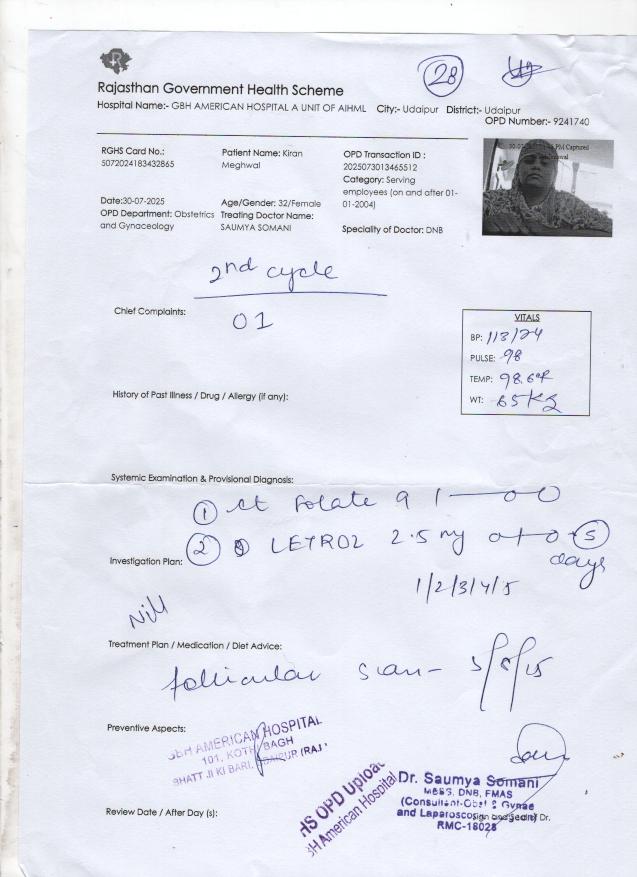 28
Rajasthan Government Health Scheme
Hospital Name:- GBH AMERICAN HOSPITAL A UNIT OF AIHML City:- Udaipur District:- Udaipur
OPD Number:- 9241740
RGHS Card No.: 5072024183432865
Patient Name: Kiran Meghwal
OPD Transaction ID : 2025073013465512
Category: Serving employees (on and after 01-01-2004)
PM Captured
Date:30-07-2025
Age/Gender: 32/Female
OPD Department: Obstetrics and Gynaceology
Treating Doctor Name: SAUMYA SOMANI
Speciality of Doctor: DNB
2nd cycle
Chief Complaints:
01
VITALS
BP: 113/74
PULSE: 98
TEMP: 98.6°F
WT: 65Kg
History of Past Illness / Drug / Allergy (if any):
Systemic Examination & Provisional Diagnosis:
① ct Folate 9 1—0—0
② LETROZ 2.5 mg 0+0 5 days
Investigation Plan:
1/2/3/4/5
Nill
Treatment Plan / Medication / Diet Advice:
follicular scan-
Preventive Aspects:
GBH AMERICAN HOSPITAL
101, KOTHI BAGH
BHATT JI KI BARI, UDAIPUR (RAJ.)
HS OPD Upload
BH American Hospital
Dr. Saumya Somani
MBBS, DNB, FMAS
(Consultant-Obst & Gynae
and Laparoscopic
RMC-18028
Review Date / After Day (s):